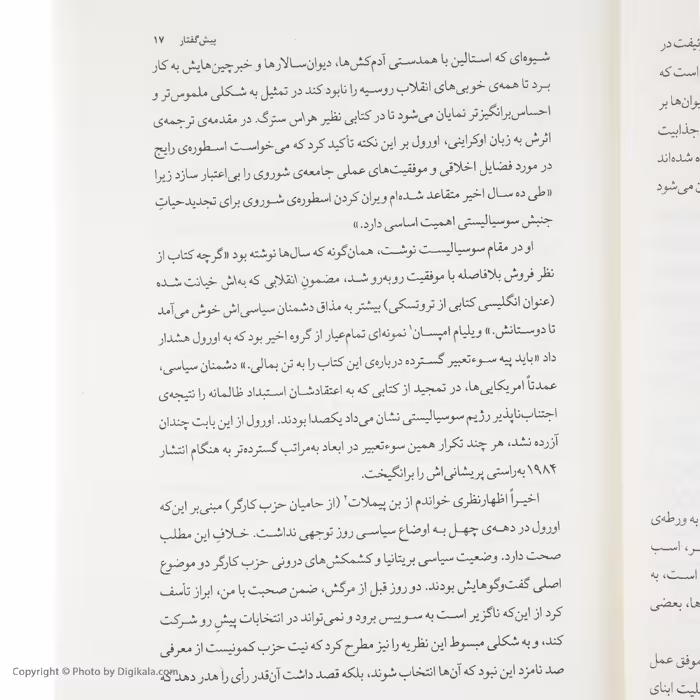 پیش‌گفتار ۱۷
شیوه‌ای که استالین با همدستی آدم‌کش‌ها، دیوان‌سالارها و خبرچین‌هایش به کار
برد تا همه‌ی خوبی‌های انقلاب روسیه را نابود کند در تمثیل به شکلی ملموس‌تر و
احساس‌برانگیزتر نمایان می‌شود تا در کتابی نظیر هراس سترگ. در مقدمه‌ی ترجمه‌ی
اثرش به زبان اوکراینی، اورول بر این نکته تأکید کرد که می‌خواست اسطوره‌ی رایج
در مورد فضایل اخلاقی و موفقیت‌های عملی جامعه‌ی شوروی را بی‌اعتبار سازد زیرا
«طی ده سال اخیر متقاعد شده‌ام ویران کردن اسطوره‌ی شوروی برای تجدیدحیاتِ
جنبش سوسیالیستی اهمیت اساسی دارد.»
او در مقام سوسیالیست نوشت، همان‌گونه که سال‌ها نوشته بود «گرچه کتاب از
نظر فروش بلافاصله با موفقیت روبه‌رو شد، مضمونِ انقلابی که به‌اش خیانت شده
(عنوان انگلیسی کتابی از تروتسکی) بیشتر به مذاق دشمنان سیاسی‌اش خوش می‌آمد
تا دوستانش.» ویلیام امپسان۱ نمونه‌ای تمام‌عیار از گروه اخیر بود که به اورول هشدار
داد «باید پیه سوءتعبیر گسترده درباره‌ی این کتاب را به تن بمالی.» دشمنان سیاسی،
عمدتاً امریکایی‌ها، در تمجید از کتابی که به اعتقادشان استبداد ظالمانه را نتیجه‌ی
اجتناب‌ناپذیر رژیم سوسیالیستی نشان می‌داد یکصدا بودند. اورول از این بابت چندان
آزرده نشد، هر چند تکرار همین سوءتعبیر در ابعاد به‌مراتب گسترده‌تر به هنگام انتشار
۱۹۸۴ به‌راستی پریشانی‌اش را برانگیخت.
اخیراً اظهارنظری خواندم از بن پیملات۲ (از حامیان حزب کارگر) مبنی‌بر این‌که
اورول در دهه‌ی چهل به اوضاع سیاسی روز توجهی نداشت. خلافِ این مطلب
صحت دارد. وضعیت سیاسی بریتانیا و کشمکش‌های درونی حزب کارگر دو موضوع
اصلی گفت‌وگوهایش بودند. دو روز قبل از مرگش، ضمن صحبت با من، ابراز تأسف
کرد از این‌که ناگزیر است به سوییس برود و نمی‌تواند در انتخابات پیشِ رو شرکت
کند، و به شکلی مبسوط این نظریه را نیز مطرح کرد که نیت حزب کمونیست از معرفی
صد نامزد این نبود که آن‌ها انتخاب شوند، بلکه قصد داشت آن‌قدر رأی را هدر دهد که
Copyright © Photo by Digikala.com
است که
جذابیت
شده‌اند
می‌شود
به ورطه‌ی
است، به
ها، بعضی
موفق عمل